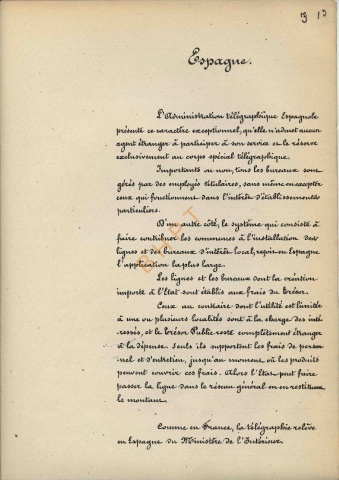 3 13
Espagne.
L'Administration télégraphique Espagnole
présente ce caractère exceptionnel, qu'elle n'admet aucun
agent étranger à participer à son service et le réserve
exclusivement au corps spécial télégraphique.
Importants ou non, tous les bureaux sont
gérés par des employés titulaires, sans même en excepter
ceux qui fonctionnent dans l'intérêt d'établissements
particuliers.
D'un autre côté, le système qui consiste à
faire contribuer les communes à l'installation des
lignes et des bureaux d'intérêt local, reçoit en Espagne
l'application la plus large.
Les lignes et les bureaux dont la création
importe à l'Etat sont établis aux frais du Trésor.
Ceux au contraire dont l'utilité est limitée
à une ou plusieurs localités sont à la charge des inté-
ressés, et le Trésor Public reste complètement étranger
à la dépense. Seuls ils supportent les frais de person-
nel et d'entretien, jusqu'au moment où les produits
peuvent couvrir ces frais. Alors l'Etat peut faire
passer la ligne dans le réseau général en en restituant
le montant.
Comme en France, la télégraphie relève
en Espagne du Ministère de l'Intérieur.